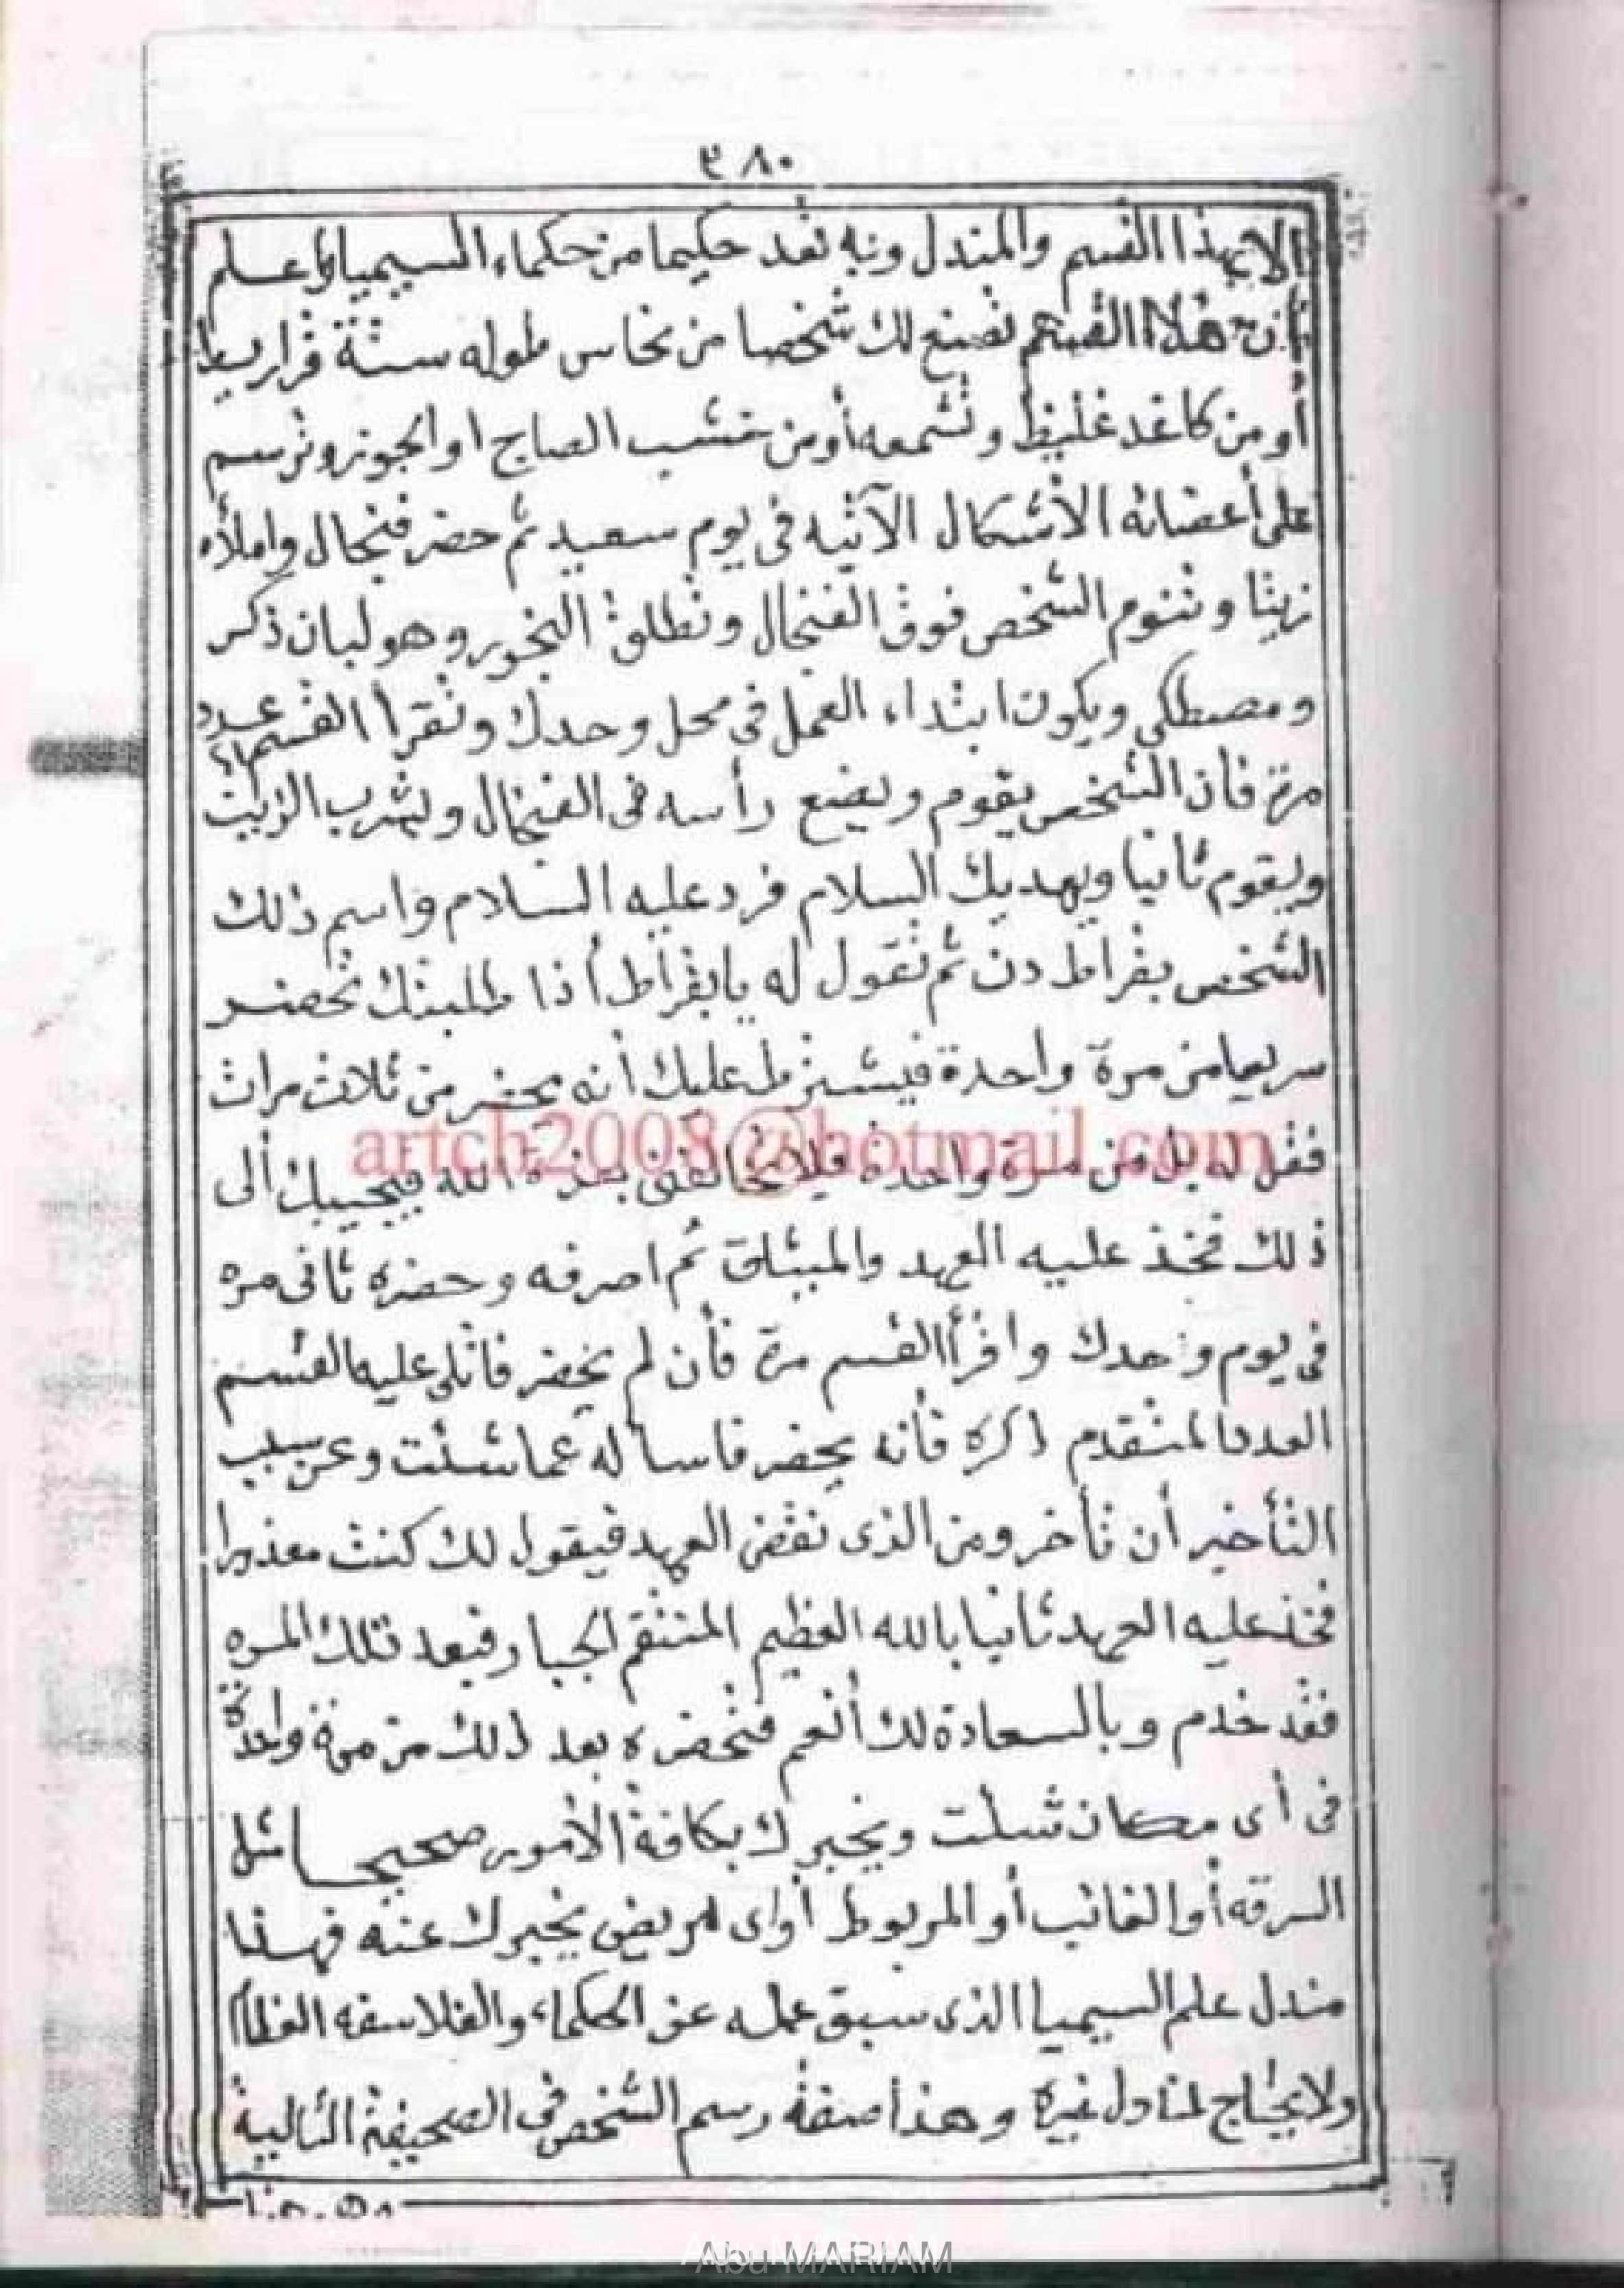 ٣٨٠
الا بهذا القسم والمندل وبه تعد حكيما من حكماء السيميا واعلم
أن هذا القسم تصنع لك شخصا من نحاس طوله ستة قراريط
أو من كاغد غليظ وتشمعه أو من خشب الصاج او الجوز وترسم
على أعضائه الأشكال الآتيه فى يوم سعيد ثم حضر فنجال واملأه
زيتا وتنوم الشخص فوق الفنجال وتطلق البخور وهو لبان ذكر
ومصطكى ويكون ابتداء العمل فى محل وحدك وتقرأ القسم عدد
مرة فان الشخص يقوم ويضع رأسه فى الفنجال ويشرب الزيت
ويقوم ثانيا ويهديك السلام فرد عليه السلام واسم ذلك
الشخص بقراط دن ثم تقول له يابقراط أذا طلبتك تحضر
سريعا من مرة واحدة فيشترط عليك أنه يحضر من ثلاث مرات
فقل له بل من مرة واحدة فلا تخالفنى بعزة الله فيجيبك ألى
ذلك فخذ عليه العهد والميثاق ثم اصرفه وحضره ثانى مره
فى يوم وحدك واقرأ القسم مرة فأن لم يحضر فاتلى عليه القسم
العدد المتقدم ذكره فأنه يحضر فاسأله عما شئت وعن سبب
التأخير أن تأخر ومن الذى نقض العهد فيقول لك كنت معذورا
فخذ عليه العهد ثانيا بالله العظيم المنتقم الجبار فبعد تلك المره
فقد خدم وبالسعادة لك أنعم فتحضره بعد ذلك من مرة واحدة
فى أى مكان شئت ويخبرك بكافة الأمور صحيحا مثل
السرقه أو الغائب أو المربوط أو اى مريض يخبرك عنه فهذا
مندل علم السيميا الذى سبق عمله عن الحكماء والفلاسفه العظام
ولا يحتاج لمناول غيره وهذا صفة رسم الشخص فى الصحيفة التالية
artch2008@hotmail.com
Abu MARIAM